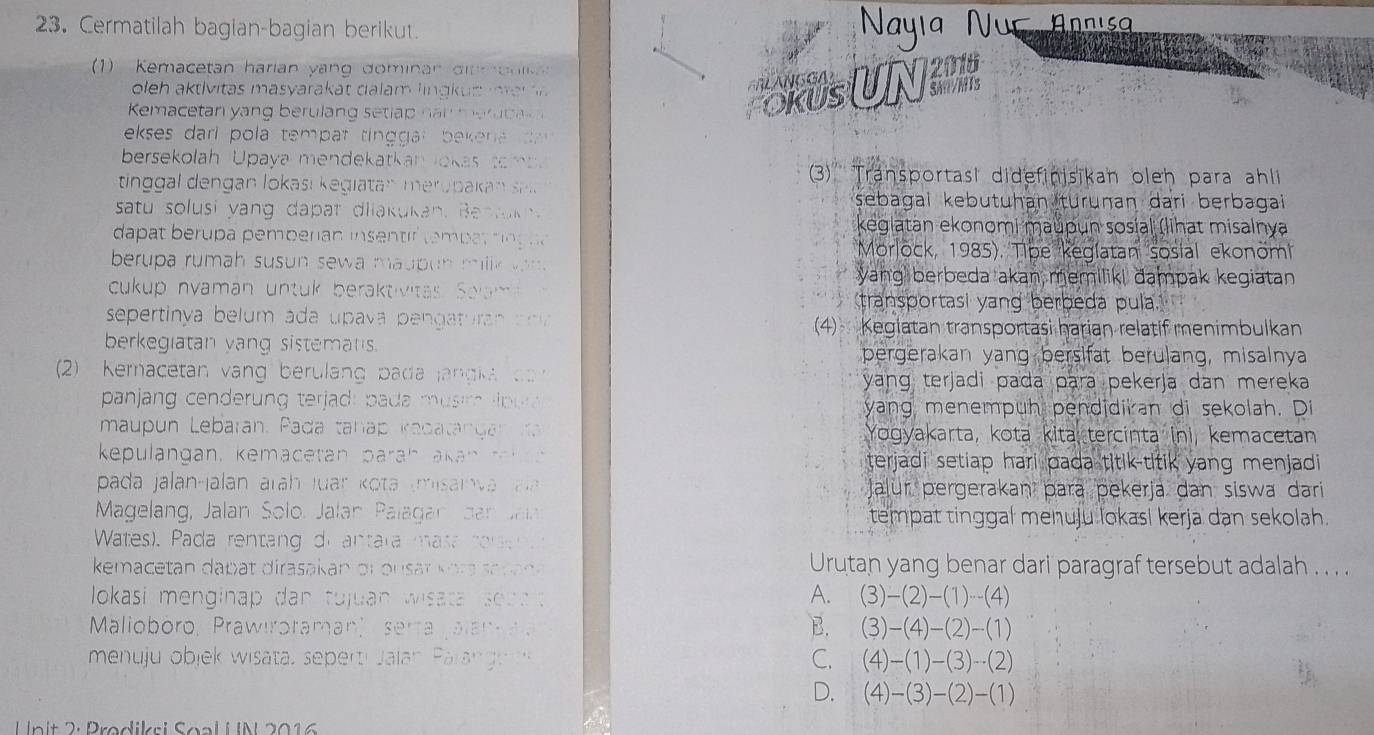 23. Cermatilah bagian-bagian berikut.
(1) Kemacetan harian yang dominan
oleh aktivitas masyarakat dalam
Kemacetan yang berulang setiap
ekses dari pola tempat tinggal bekerja
bersekolah Upaya mendekatkan lokasi
tinggal dengan lokasi kegiatan merupakan
satu solusi yang dapat dilakukan.
dapat berupa pemberian insentif tempat
berupa rumah susun sewa maupun milik
cukup nyaman untuk beraktivitas.
sepertinya belum ada upaya pengaturan
berkegiatan yang sistematis.
(2) Kemacetan yang berulang pada jangka
panjang cenderung terjadi pada musim
maupun Lebaran. Pada tahap kedatangan
kepulangan, kemacetan parah akan
pada jalan-jalan arah luar kota (misalnya
Magelang, Jalan Solo. Jalan Palagan dan
Wates). Pada rentang di antara masa
kemacetan dapat dirasakan di pusat kota
lokasi menginap dan tujuan wisata
Malioboro, Prawirotaman) serta
menuju objek wisata. seperti Jalan
Unit 2: Prediksi Soal UN 2016
Nayla Nur Annisa
ERLANGGA
FOKUS UN 2016
SMP/MTs
(3) Transportasi didefinisikan oleh para ahli
sebagai kebutuhan turunan dari berbagai
kegiatan ekonomi maupun sosial (lihat misalnya
Morlock, 1985). Tipe kegiatan sosial ekonomi
yang berbeda akan memiliki dampak kegiatan
transportasi yang berbeda pula.
(4) Kegiatan transportasi harian relatif menimbulkan
pergerakan yang bersifat berulang, misalnya
yang terjadi pada para pekerja dan mereka
yang menempuh pendidikan di sekolah. Di
Yogyakarta, kota kita tercinta ini, kemacetan
terjadi setiap hari pada titik-titik yang menjadi
jalur pergerakan para pekerja dan siswa dari
tempat tinggal menuju lokasi kerja dan sekolah.
Urutan yang benar dari paragraf tersebut adalah . . . .
A. (3)–(2)–(1)–(4)
B. (3)–(4)–(2)–(1)
C. (4)–(1)–(3)–(2)
D. (4)–(3)–(2)–(1)